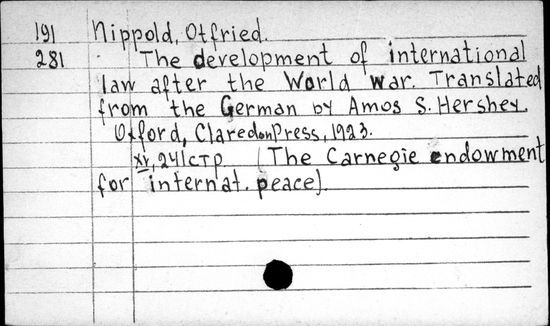 191 Nippold, Otfried.
281 The development of international
law after the World war. Translated
from the German by Amos S. Hershey.
Oxford, Claredon Press, 1923.
XV, 241 стр. (The Carnegie endowment
for internat. peace).